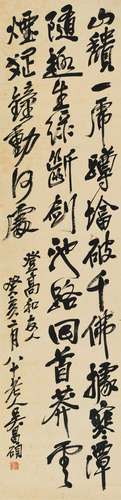 山積一席蹲壚破千佛據寒潭
隨趣生綠斷劍池路回首莽雲
煙遲鐘動何處
登高和友人
癸亥二月八十老人吳昌碩